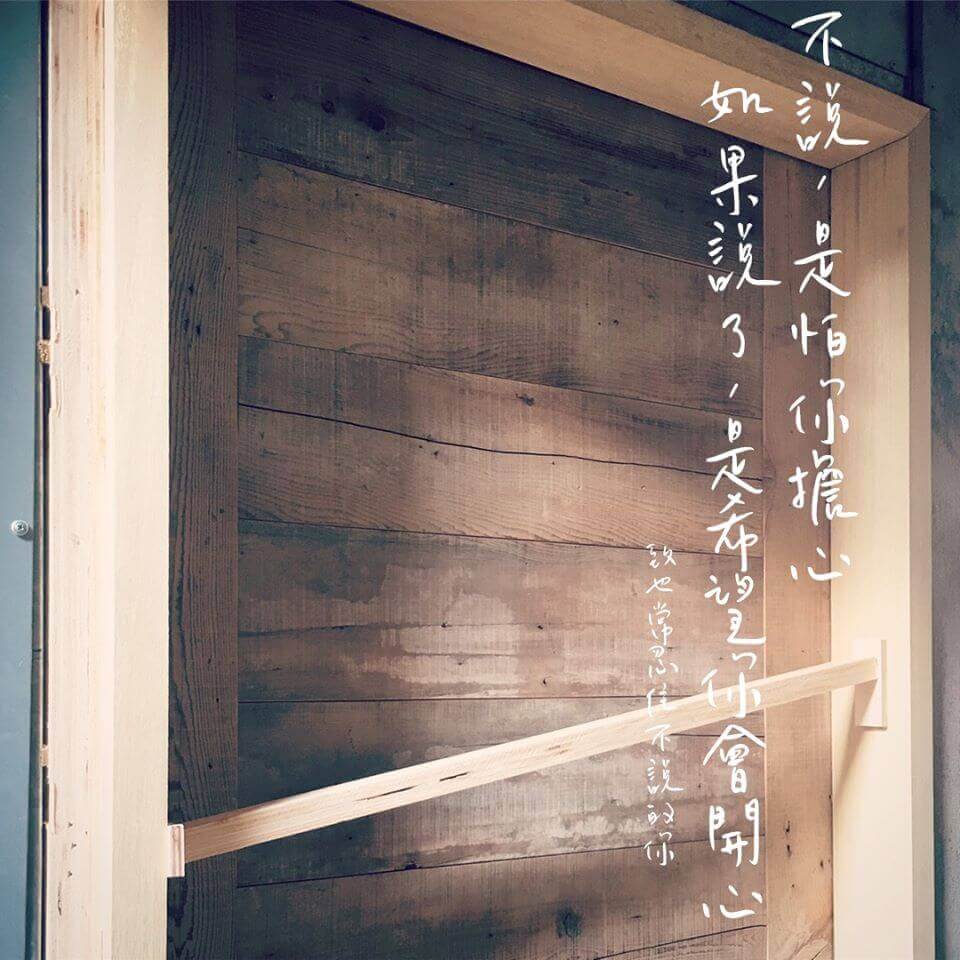 不說，是怕你擔心
如果說了，是希望你會開心
致也常忍住不說的你